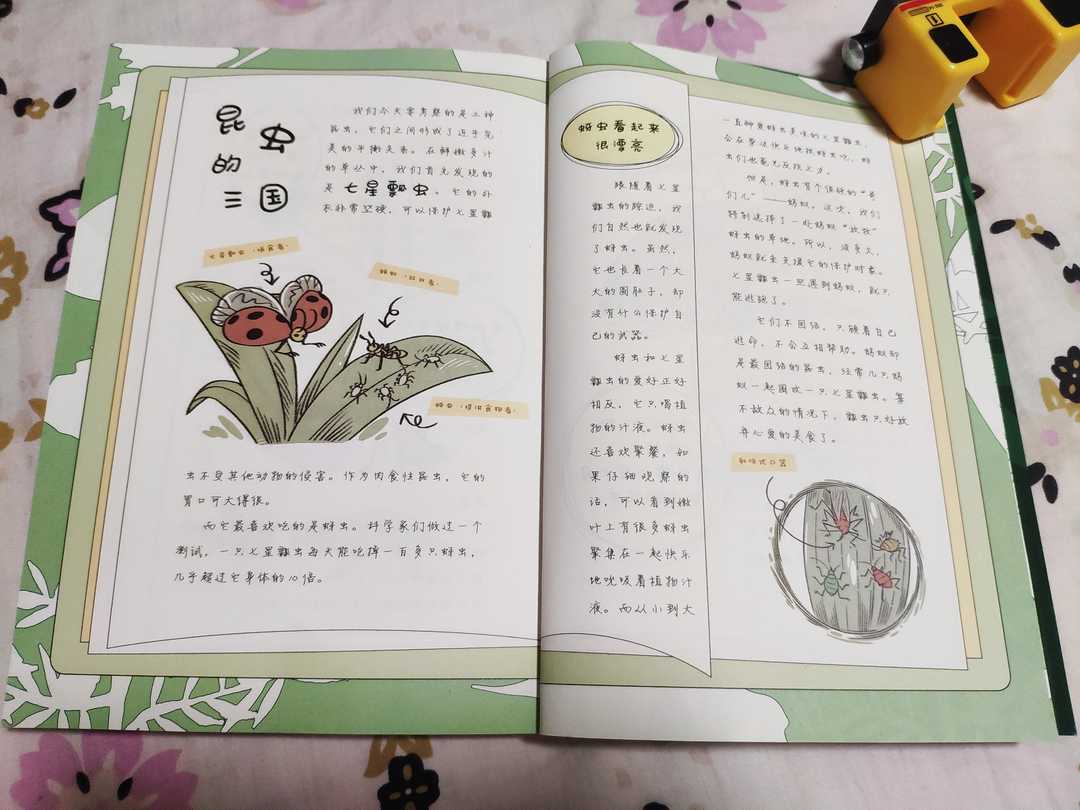 昆虫
的三国
我们今天要考察的是三种
昆虫，它们之间形成了近乎完
美的平衡关系。在鲜嫩多汁
的草丛中，我们首先发现的
是七星瓢虫。它的外
衣非常坚硬，可以保护七星瓢
七星瓢虫（捕食者）
蚜虫（提供食物者）
虫不受其他动物的侵害。作为肉食性昆虫，它的
胃口可大得很。
而它最喜欢吃的是蚜虫。科学家们做过一个
测试，一只七星瓢虫每天能吃掉一百多只蚜虫，
几乎超过它身体的10倍。
蚜虫看起来
很漂亮
跟随着七星
瓢虫的踪迹，我
们自然也就发现
了蚜虫。虽然，
它也长着一个大
大的圆肚子，却
没有什么保护自
己的武器。
蚜虫和七星
瓢虫的爱好正好
相反，它只喝植
物的汁液。蚜虫
还喜欢聚餐，如
果仔细观察的
话，可以看到嫩
叶上有很多蚜虫
聚集在一起快乐
地吮吸着植物汁
液。而从小到大
一直钟爱蚜虫美味的七星瓢虫，
会在草丛快乐地捉蚜虫吃，蚜
虫们也毫无反抗之力。
但是，蚜虫有个很好的“哥
们儿”——蚂蚁。这次，我们
特别选择了一处蚂蚁“放牧”
蚜虫的草地。所以，没多久，
蚂蚁就来支援它的保护对象。
七星瓢虫一旦遇到蚂蚁，就只
能逃跑了。
它们不团结，只顾着自己
逃命，不会互相帮助。蚂蚁却
是最团结的昆虫，经常几只蚂
蚁一起围攻一只七星瓢虫。寡
不敌众的情况下，瓢虫只好放
弃心爱的美食了。
刺吸式口器